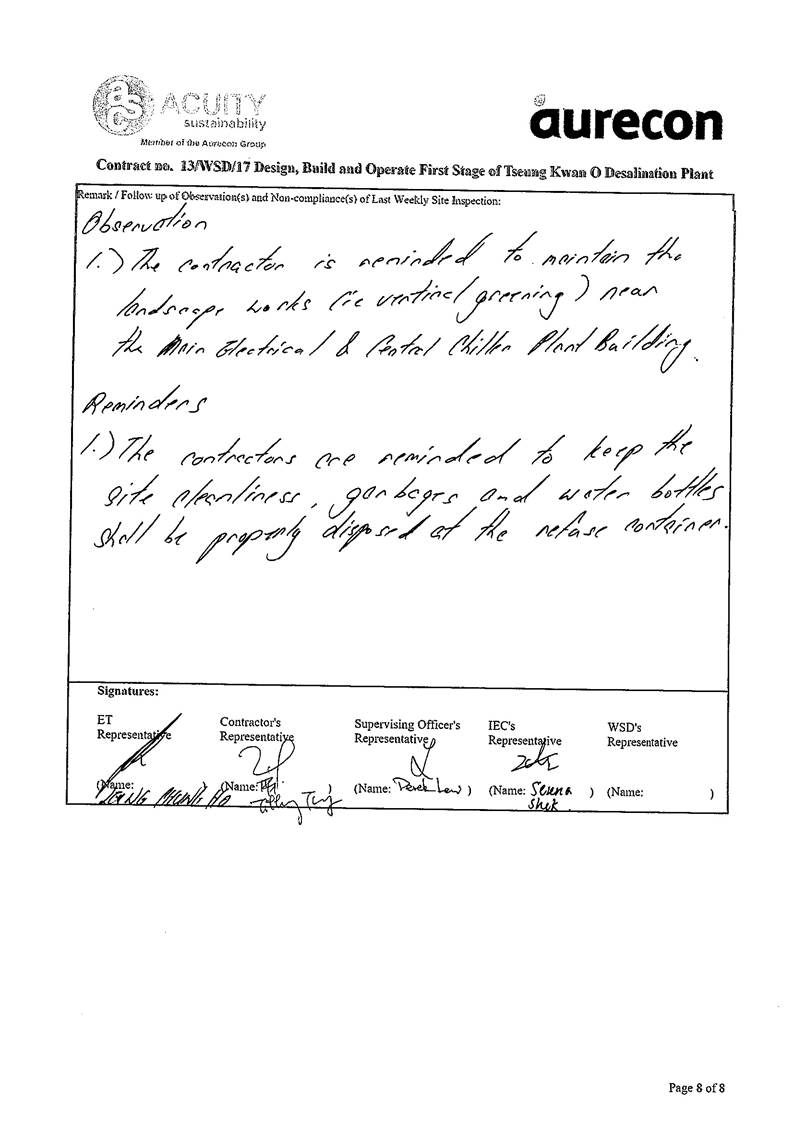 asc ACUITY
sustainability
Member of the Aurecon Group
aurecon
Contract no. 13/WSD/17 Design, Build and Operate First Stage of Tseung Kwan O Desalination Plant
Remark / Follow up of Observation(s) and Non-compliance(s) of Last Weekly Site Inspection:
Observation
1.) The contractor is reminded to maintain the
landscape works (ie vertical greening) near
the Main Electrical & Central Chiller Plant Building.
Reminders
1.) The contractors are reminded to keep the
site cleanliness, garbages and water bottles
shall be properly disposed at the refuse container.
Signatures:
ET Representative
Contractor's Representative
Supervising Officer's Representative
IEC's Representative
WSD's Representative
(Name: )
(Name: )
(Name: Derek Law )
(Name: Serena Shek )
(Name: )
Page 8 of 8